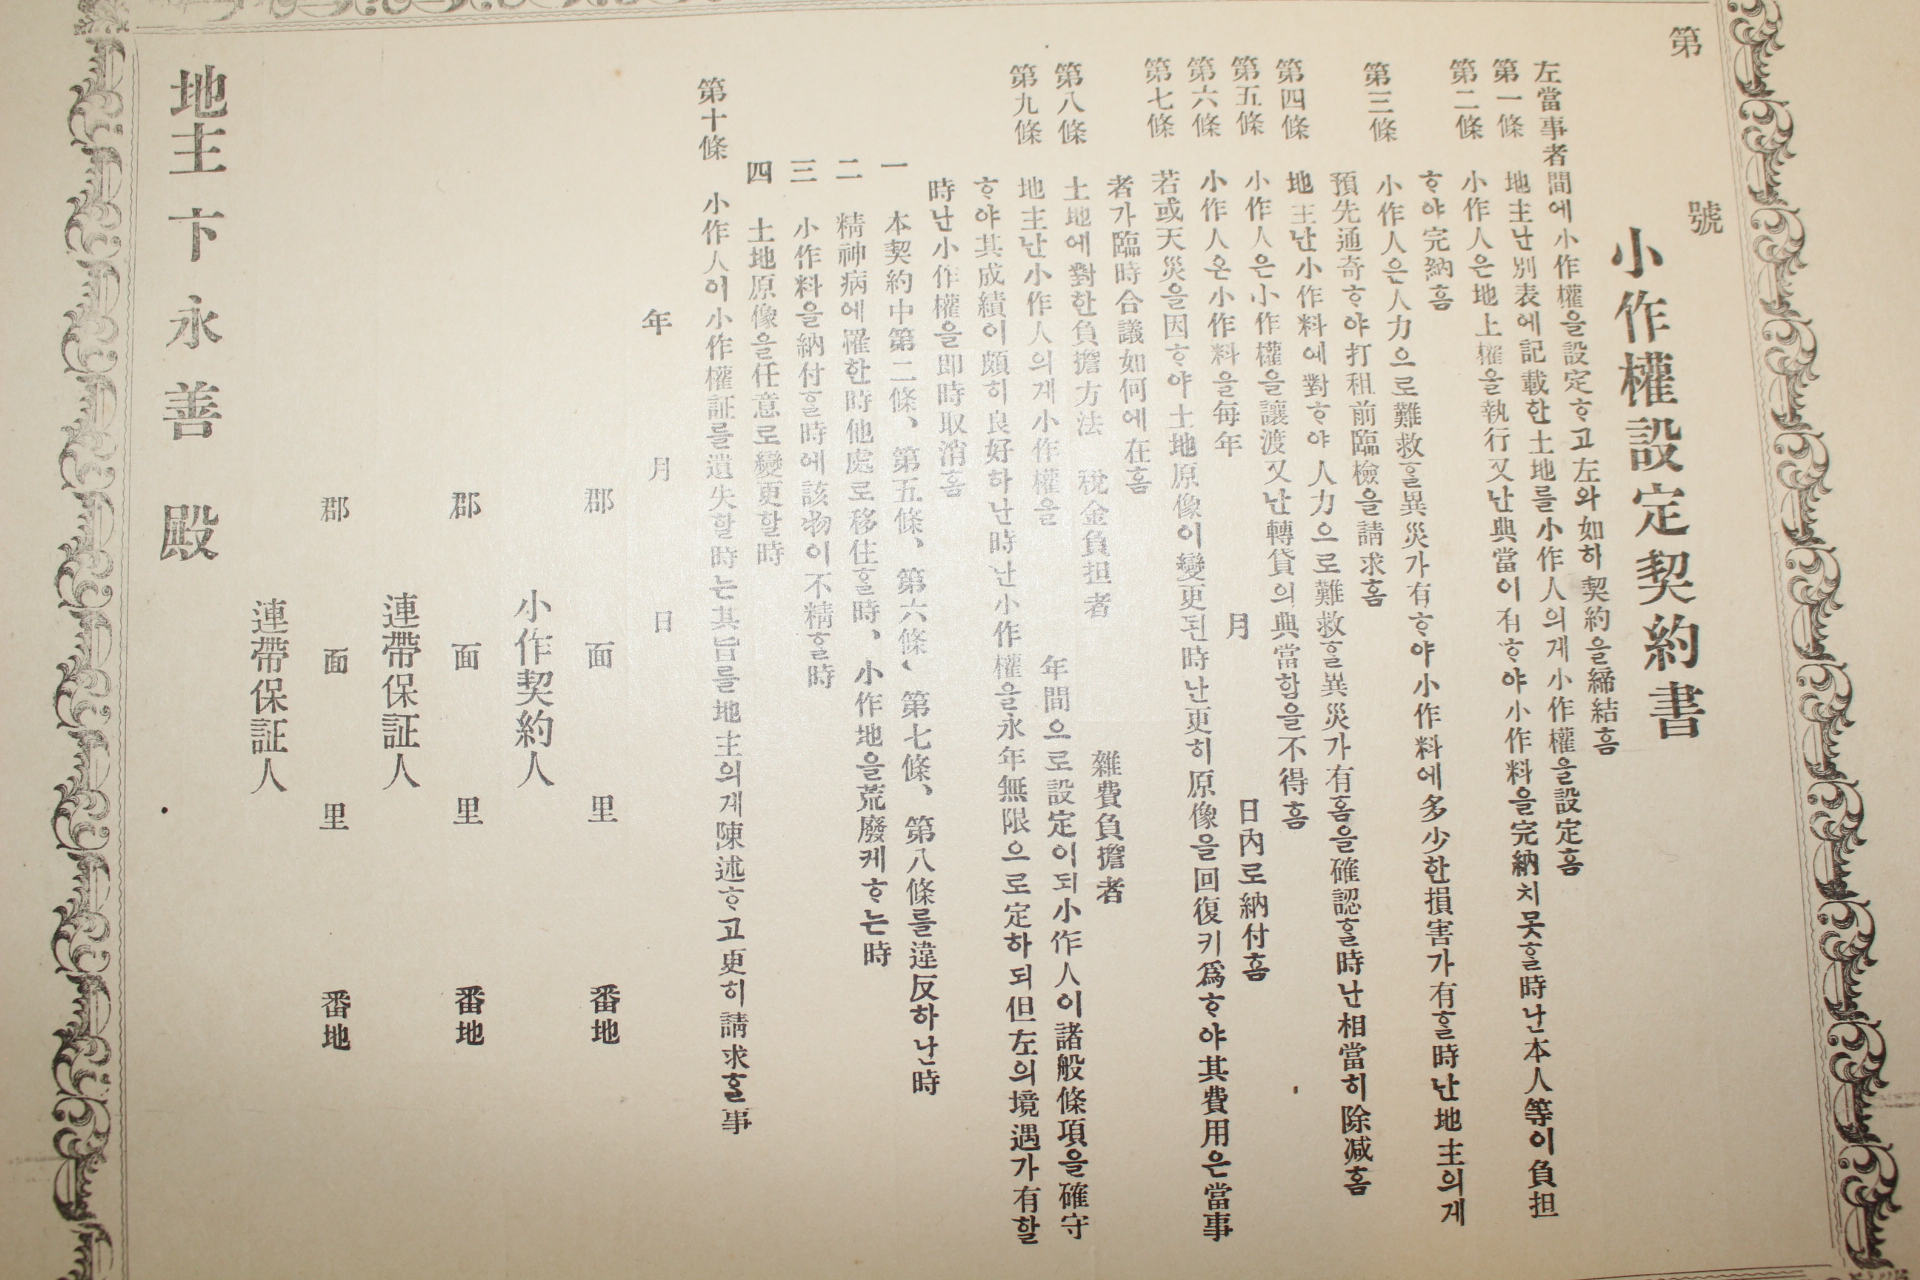 第　號
小作權設定契約書
左當事者間에小作權을設定ᄒᆞ고左와如히契約을締結홈
第一條　地主난別表에記載한土地를小作人의게小作權을設定홈
第二條　小作人은地上權을執行又난典當이有ᄒᆞ야小作料을完納치못ᄒᆞᆯ時난本人等이負担
ᄒᆞ야完納홈
第三條　小作人은人力으로難救ᄒᆞᆯ異災가有ᄒᆞ야小作料에多少한損害가有ᄒᆞᆯ時난地主의게
預先通奇ᄒᆞ야打租前臨檢을請求홈
第四條　地主난小作料에對ᄒᆞ야人力으로難救ᄒᆞᆯ異災가有홈을確認ᄒᆞᆯ時난相當히除減홈
第五條　小作人은小作權을讓渡又난轉貸의典當함을不得홈
第六條　小作人은小作料을每年　月　日內로納付홈
第七條　若或天災을因ᄒᆞ야土地原像이變更된時난更히原像을回復키爲ᄒᆞ야其費用은當事
者가臨時合議如何에在홈
第八條　土地에對한負擔方法　稅金負担者　雜費負擔者
第九條　地主난小作人의게小作權을　年間으로設定이되小作人이諸般條項을確守
ᄒᆞ야其成績이頗히良好하난時난小作權을永年無限으로定하되但左의境遇가有할
時난小作權을即時取消홈
一　本契約中第二條、第五條、第六條、第七條、第八條를違反하난時
二　精神病에罹한時他處로移住ᄒᆞᆯ時、小作地을荒廢케ᄒᆞ는時
三　小作料을納付ᄒᆞᆯ時에該物이不精ᄒᆞᆯ時
四　土地原像을任意로變更할時
第十條　小作人이小作權証를遺失할時는其旨를地主의게陳述ᄒᆞ고更히請求ᄒᆞᆯ事
年　月　日
郡　面　里　番地
小作契約人
郡　面　里　番地
連帶保証人
郡　面　里　番地
連帶保証人
地主卞永善殿